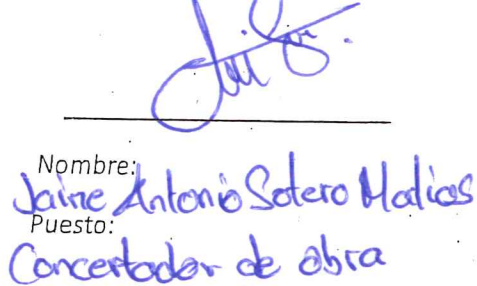 Nombre:
Jaime Antonio Sotero Matias
Puesto:
Concertador de obra